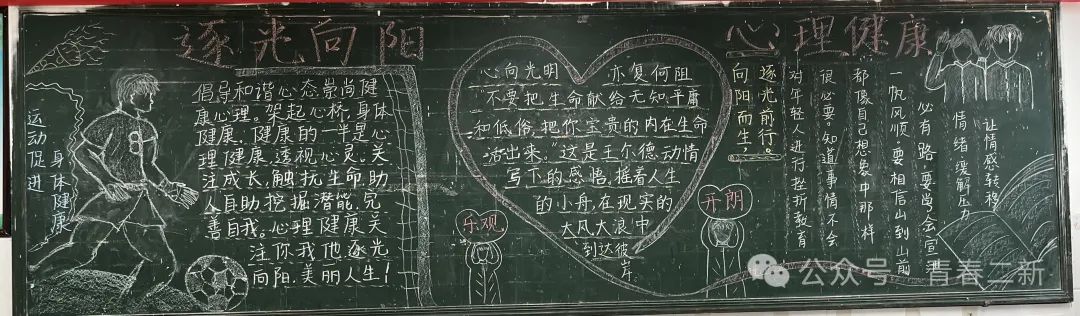 逐光向阳
心理健康
运动促进
身体健康
倡导和谐心态崇尚健
康心理。架起心桥,身体
健康,健康的一半是心
理健康,透视心灵,关
注成长,触抗生命,助
人自助,挖掘潜能,完
善自我。心理健康关
注你我他,逐光
向阳,美丽人生!
心向光明 亦复何阻
"不要把生命献给无知,平庸
和低俗,把你宝贵的内在生命
活出来。"这是王尔德动情
写下的感悟,摇着人生
的小舟,在现实的
大风大浪中
到达彼岸
乐观
开朗
逐光前行。
向阳而生!
对年轻人进行挫折教育
很必要,知道事情不会
都像自己想象中那样
一帆风顺。要相信山到山前
必有路,要学会宣泄
情绪缓解压力
让情感转移
公众号·青春二新